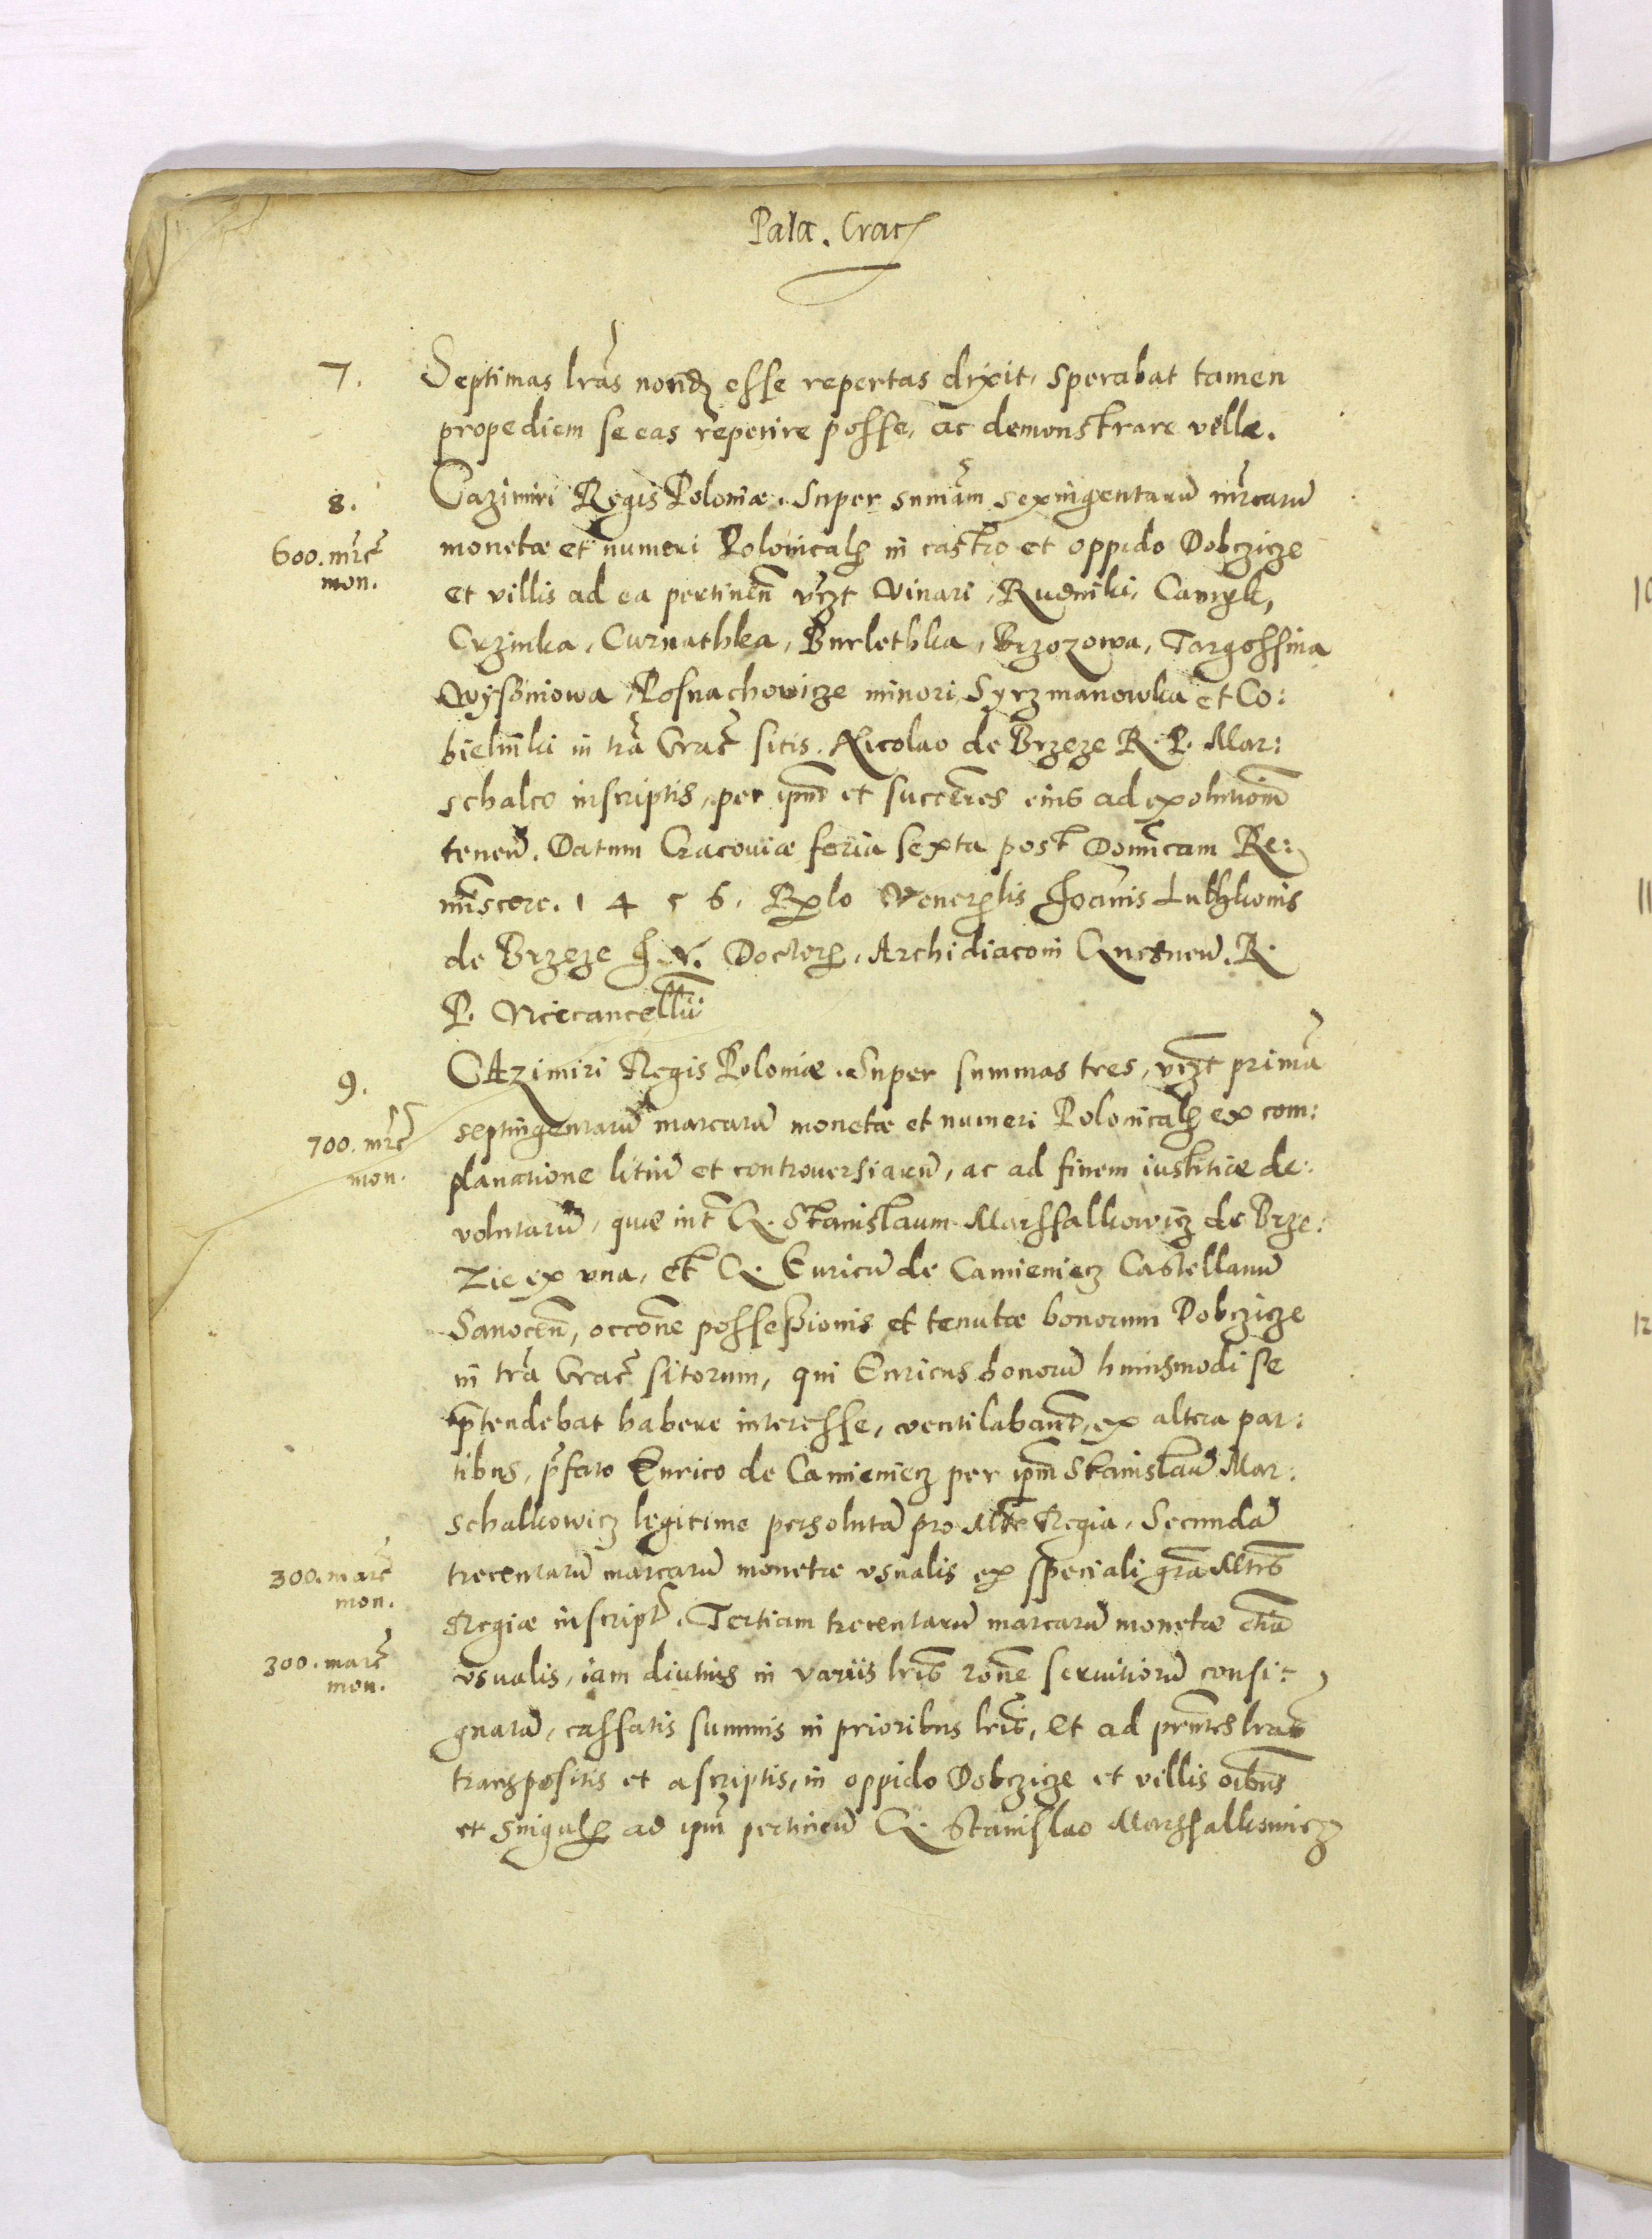 Pala. Crac
7. Septimas lras nond esse repertas dixit, sperabat tamen
propediem se eas reperire posse, ac demonstrare velle.
8. Cazimiri Regis Poloniæ. Super sumam sexingentaru mrcaru
600. mrc mon.
monetæ et numeri Polonical in castro et oppido Dobczicze
et villis ad ea pertinen vczt Winari, Rudniki, Camyk,
Crzinka, Curnathka, Burlethka, Brzozowa, Targossina
Wysoniowa, Posnachowicze minori, Syrzmanowka et Co:
bielniki in tra Crac sitis. Nicolao de Brzeze R. P. Mar:
schalco inscriptis, per ipm et successores eius ad exolutiom
tenen. Datum Cracouiæ feria sexta post Domicam Re:
miscere. 1456. Rlo Venerlis Joanis Luthkonis
de Brzeze J. V. Doctors, Archidiaconi Gnesnen. R.
P. Vicecancellrii
9. CAzimiri Regis Poloniæ. Super summas tres, vczt prima
700. mrc mon.
septingentaru marcaru monetæ et numeri Polonical ex com:
planatione litiu et controuersiaru, ac ad finem iustitiæ de:
volutaru, quæ int G. Stanislaum Marssalkowicz de Brze:
zie ex vna, et G. Enricu de Camieniecz Castellanu
Sanocen, occone possessionis et tenutæ bonorum Dobczicze
in tra Crac sitorum, qui Enricus bonoru huiusmodi se
ptendebat habere interesse, ventilabant, ex altera par:
tibus, pfato Enrico de Camieniecz per ipm Stanislau Mar:
schalkowicz legitime persoluta pro Mte Regia. Secunda
300. marc mon.
trecentaru marcaru monetæ vsualis ex speciali gra Mtis
Regiæ inscript. Tertiam trecentaru marcaru monetæ etia
300. marc mon.
vsualis, iam diutius in variis lris rone seruitioru consi:
gnata, cassatis summis in prioribus lris, et ad pntes lras
transpositis et ascriptis, in oppido Dobczicze et villis oibus
et singul ad ipm pertinen G. Stanislao Marssalkowicz